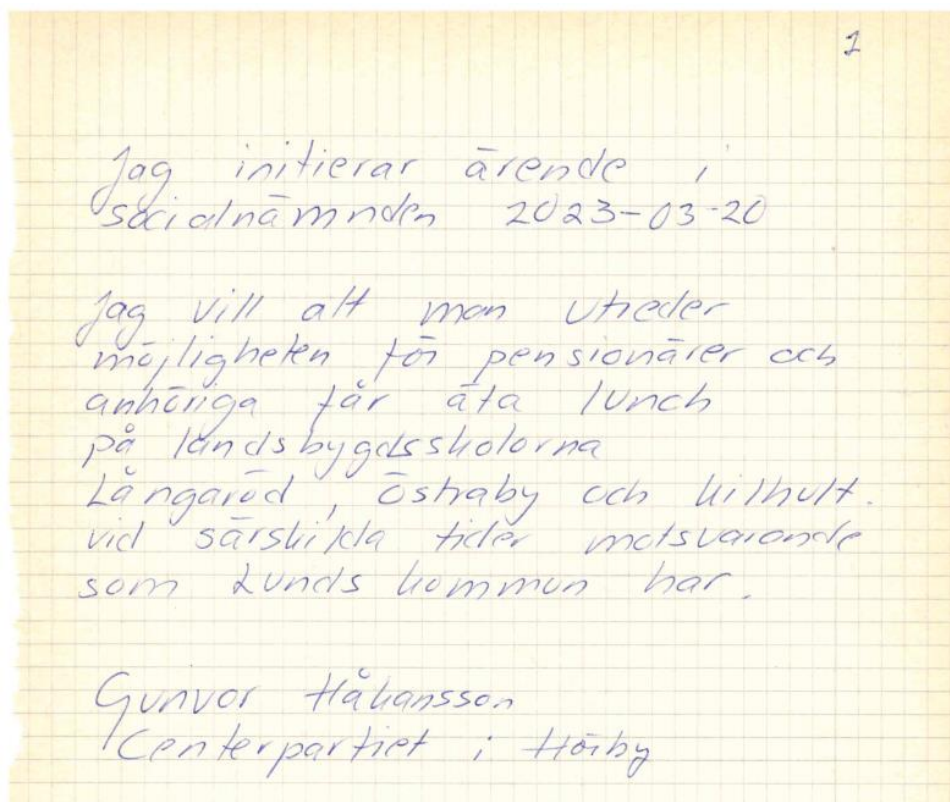 1
Jag initierar ärende i
socialnämnden 2023-03-20
Jag vill att man utreder
möjligheten för pensionärer och
anhöriga får äta lunch
på landsbygdsskolorna
Långaröd, Östraby och Killhult.
vid särskilda tider motsvarande
som Lunds kommun har.
Gunvor Håkansson
Centerpartiet i Hörby